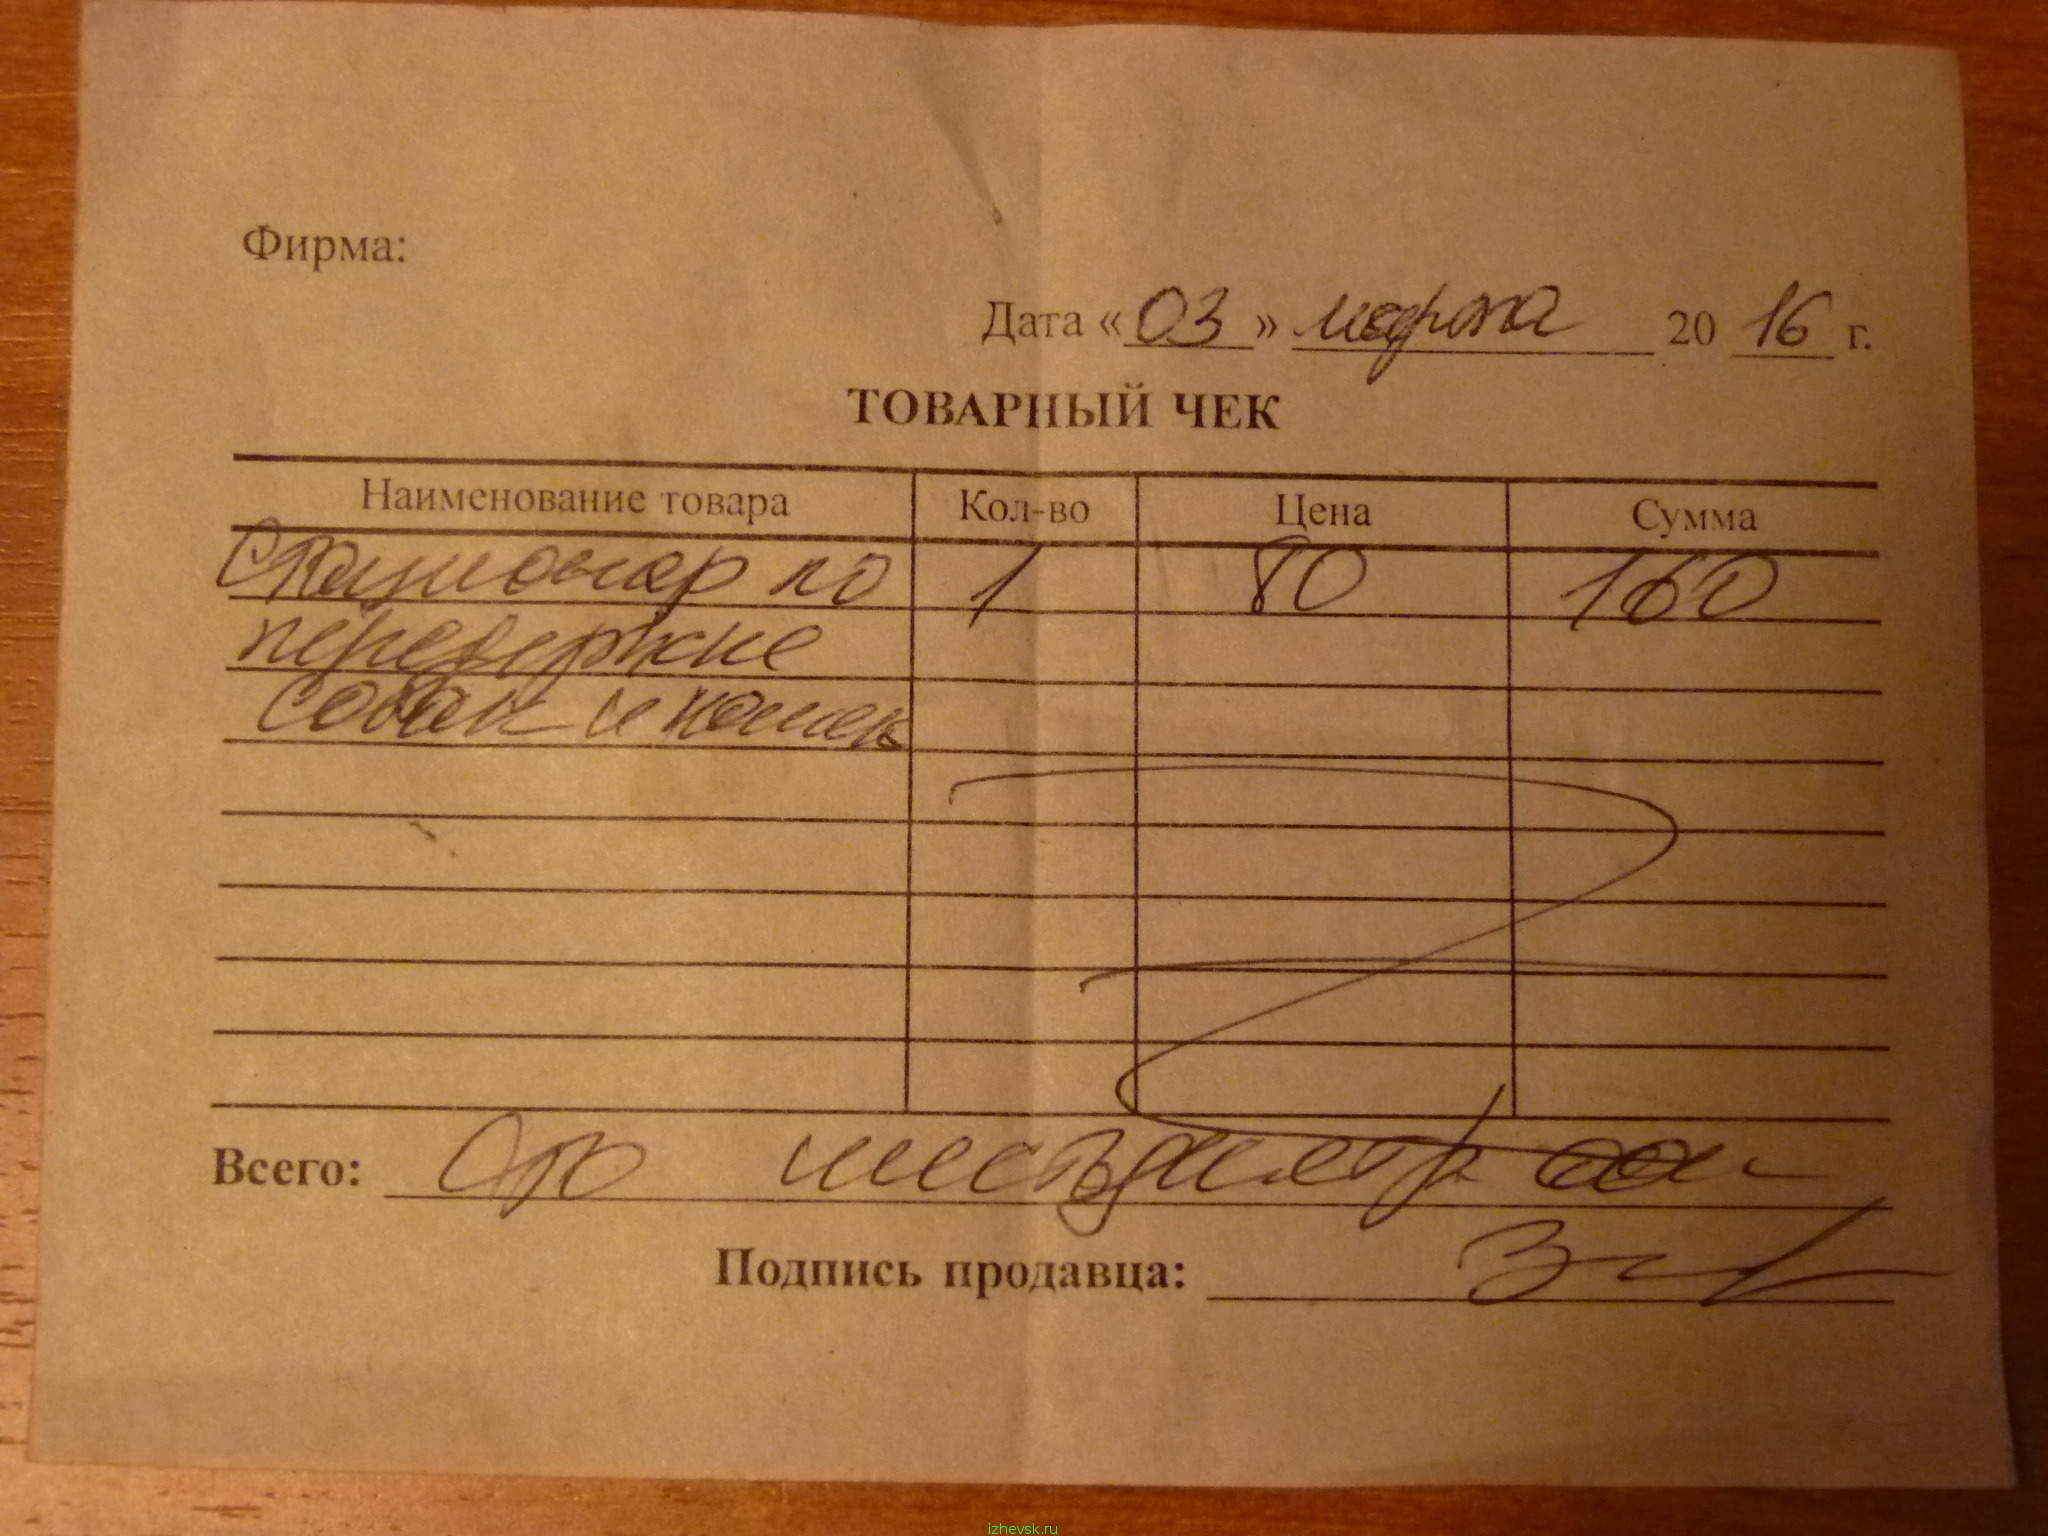 Фирма:
Дата «03» марта 20 16 г.
ТОВАРНЫЙ ЧЕК
Наименование товара Кол-во Цена Сумма
Стационар по 1 80 160
передержке
собак и кошек
Всего: Сто шестьдесят
Подпись продавца:
izhevsk.ru